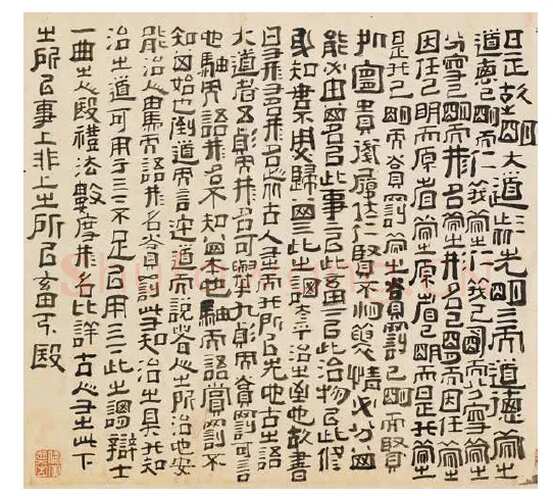 是故古明大道者先明天而道德次之
道德已明而仁義次之仁義已明而分守次之
分守已明而形名次之形名已明而因任次之
因任已明而原省次之原省已明而是非次之
是非已明而賞罰次之賞罰已明而
知處宜貴賤履位仁賢不肖襲情必分其
能必由其名以此事上以此畜下以此治物以此修
身知謀不用必歸其天此之謂太平治之至也故書
曰有形有名形名者古人有之而非所以先也古之語
大道者五變而形名可舉九變而賞罰可言
也驟而語形名不知其本也驟而語賞罰不
知其始也倒道而言迕道而說者人之所治也安
能治人驟而語形名賞罰此有知治之具非知
治之道可用于天下不足以用天下此之謂辯士
一曲之人殹禮法數度形名比詳古人有之此下
之所以事上非上之所以畜下殹